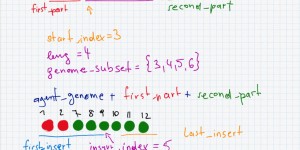 first_part second_part
start_index=3
leng = 4
genome_subset = {3,4,5,6}
agent_genome + first_part + second_part
1 2 7 8 9 10 11 12
last_insert
first insert insert_index = 5